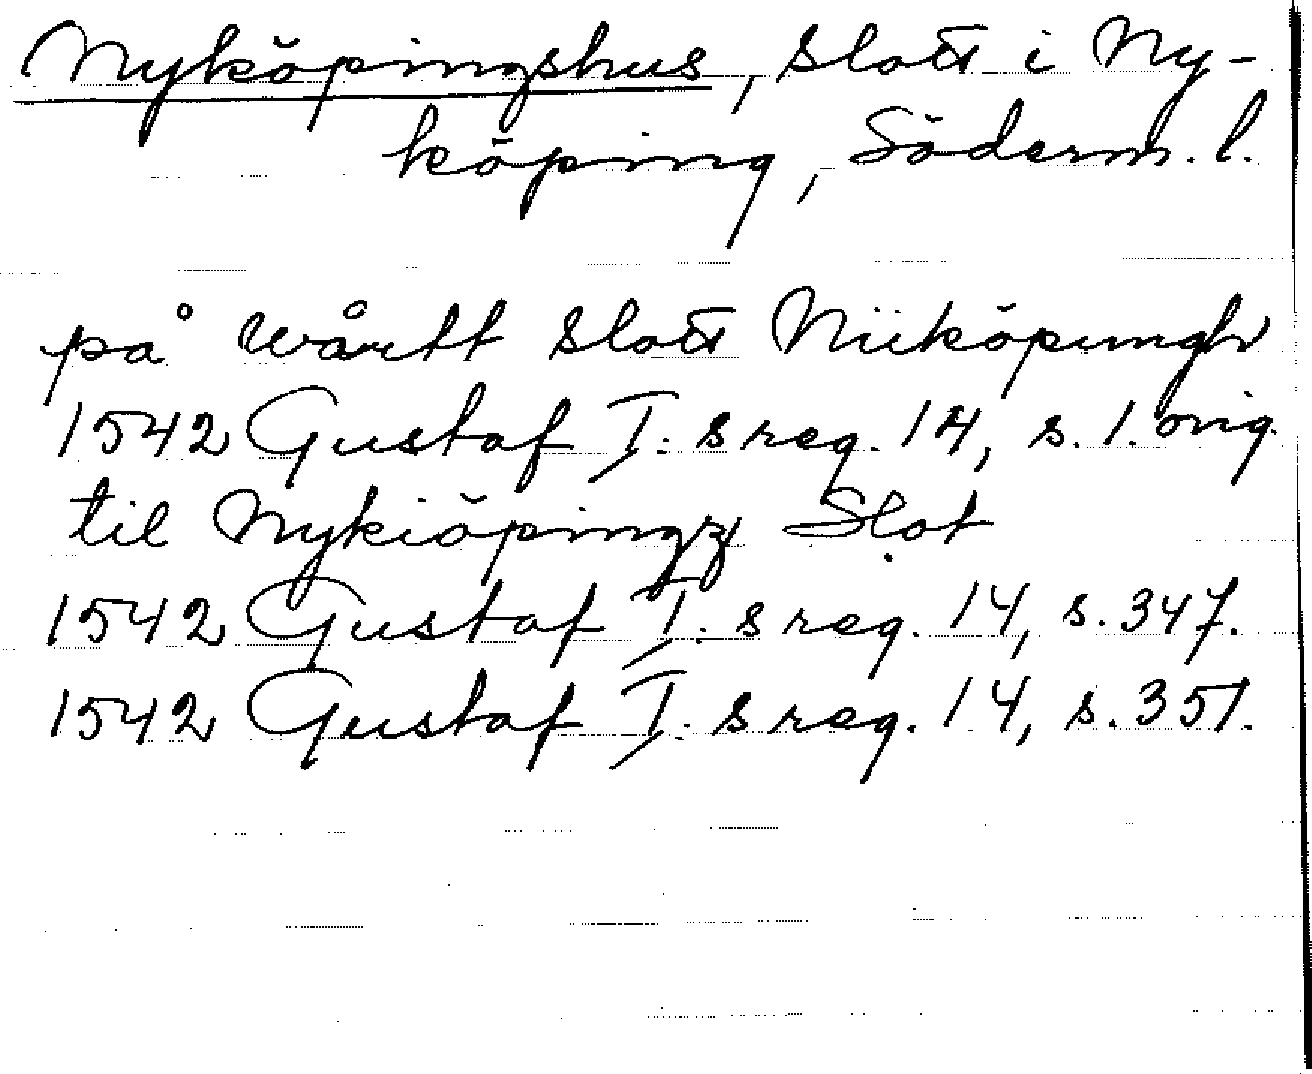 Nyköpingshus, slott i Ny-
köping, Söderm. l.
på wårtt slott Niiköpungh
1542 Gustaf I:s reg. 14, s. 1. orig.
til Nykiöpingz Slot
1542 Gustaf I:s reg. 14, s. 347.
1542 Gustaf I:s reg. 14, s. 351.